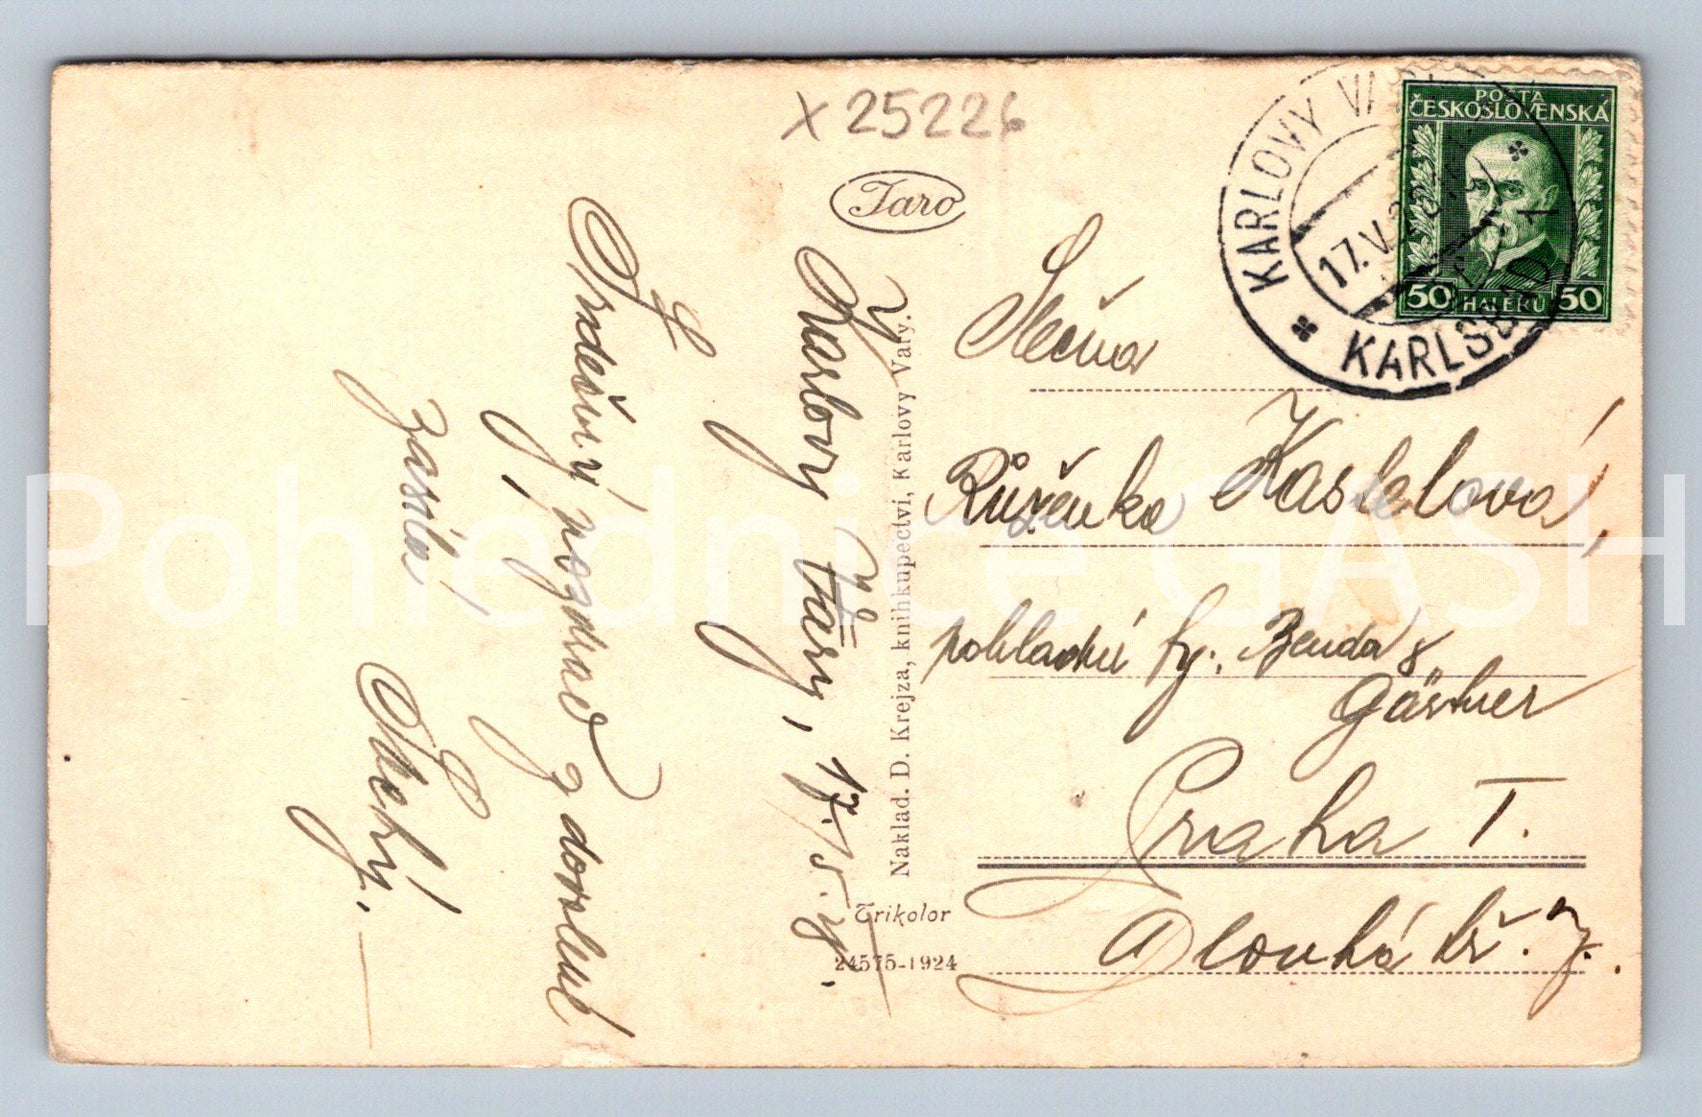 x 25226
Taro
V Karlovy Váry, 17./5. 28.
Srdečný pozdrav z dovolené
zasílá
Naklad. D. Krejza, knihkupectví, Karlovy Vary.
Trikolor
24575-1924
POŠTA
ČESKOSLOVENSKÁ
50 HALÉŘŮ 50
KARLOVY VARY
17.V.
KARLSBAD 1
Slečna
Růženka
pokladní fy. Benda &
Gärtner
Praha I.
Dlouhá tř. 7.
Pohlednice GASH